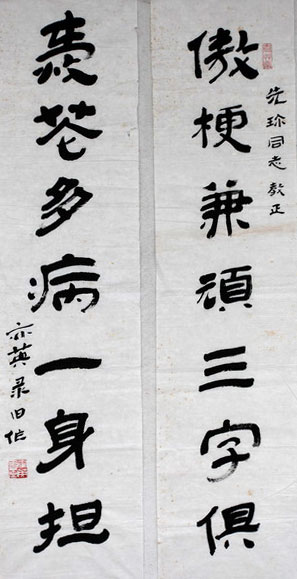 傲梗兼頑三字俱
先珍同志教正
花多病一身担
亦英录旧作